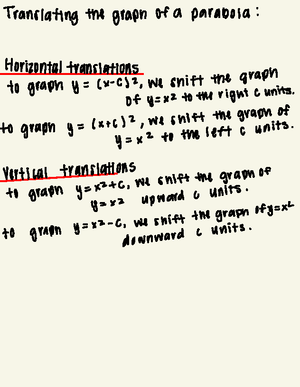 Translating the graph of a parabola:
Horizontal translations
to graph y = (x-c)², we shift the graph
of y=x² to the right c units.
to graph y = (x+c)², we shift the graph of
y = x² to the left c units.
Vertical translations
to graph y=x²+c, we shift the graph of
y=x² upward c units.
to graph y=x²-c, we shift the graph of y=x²
downward c units.